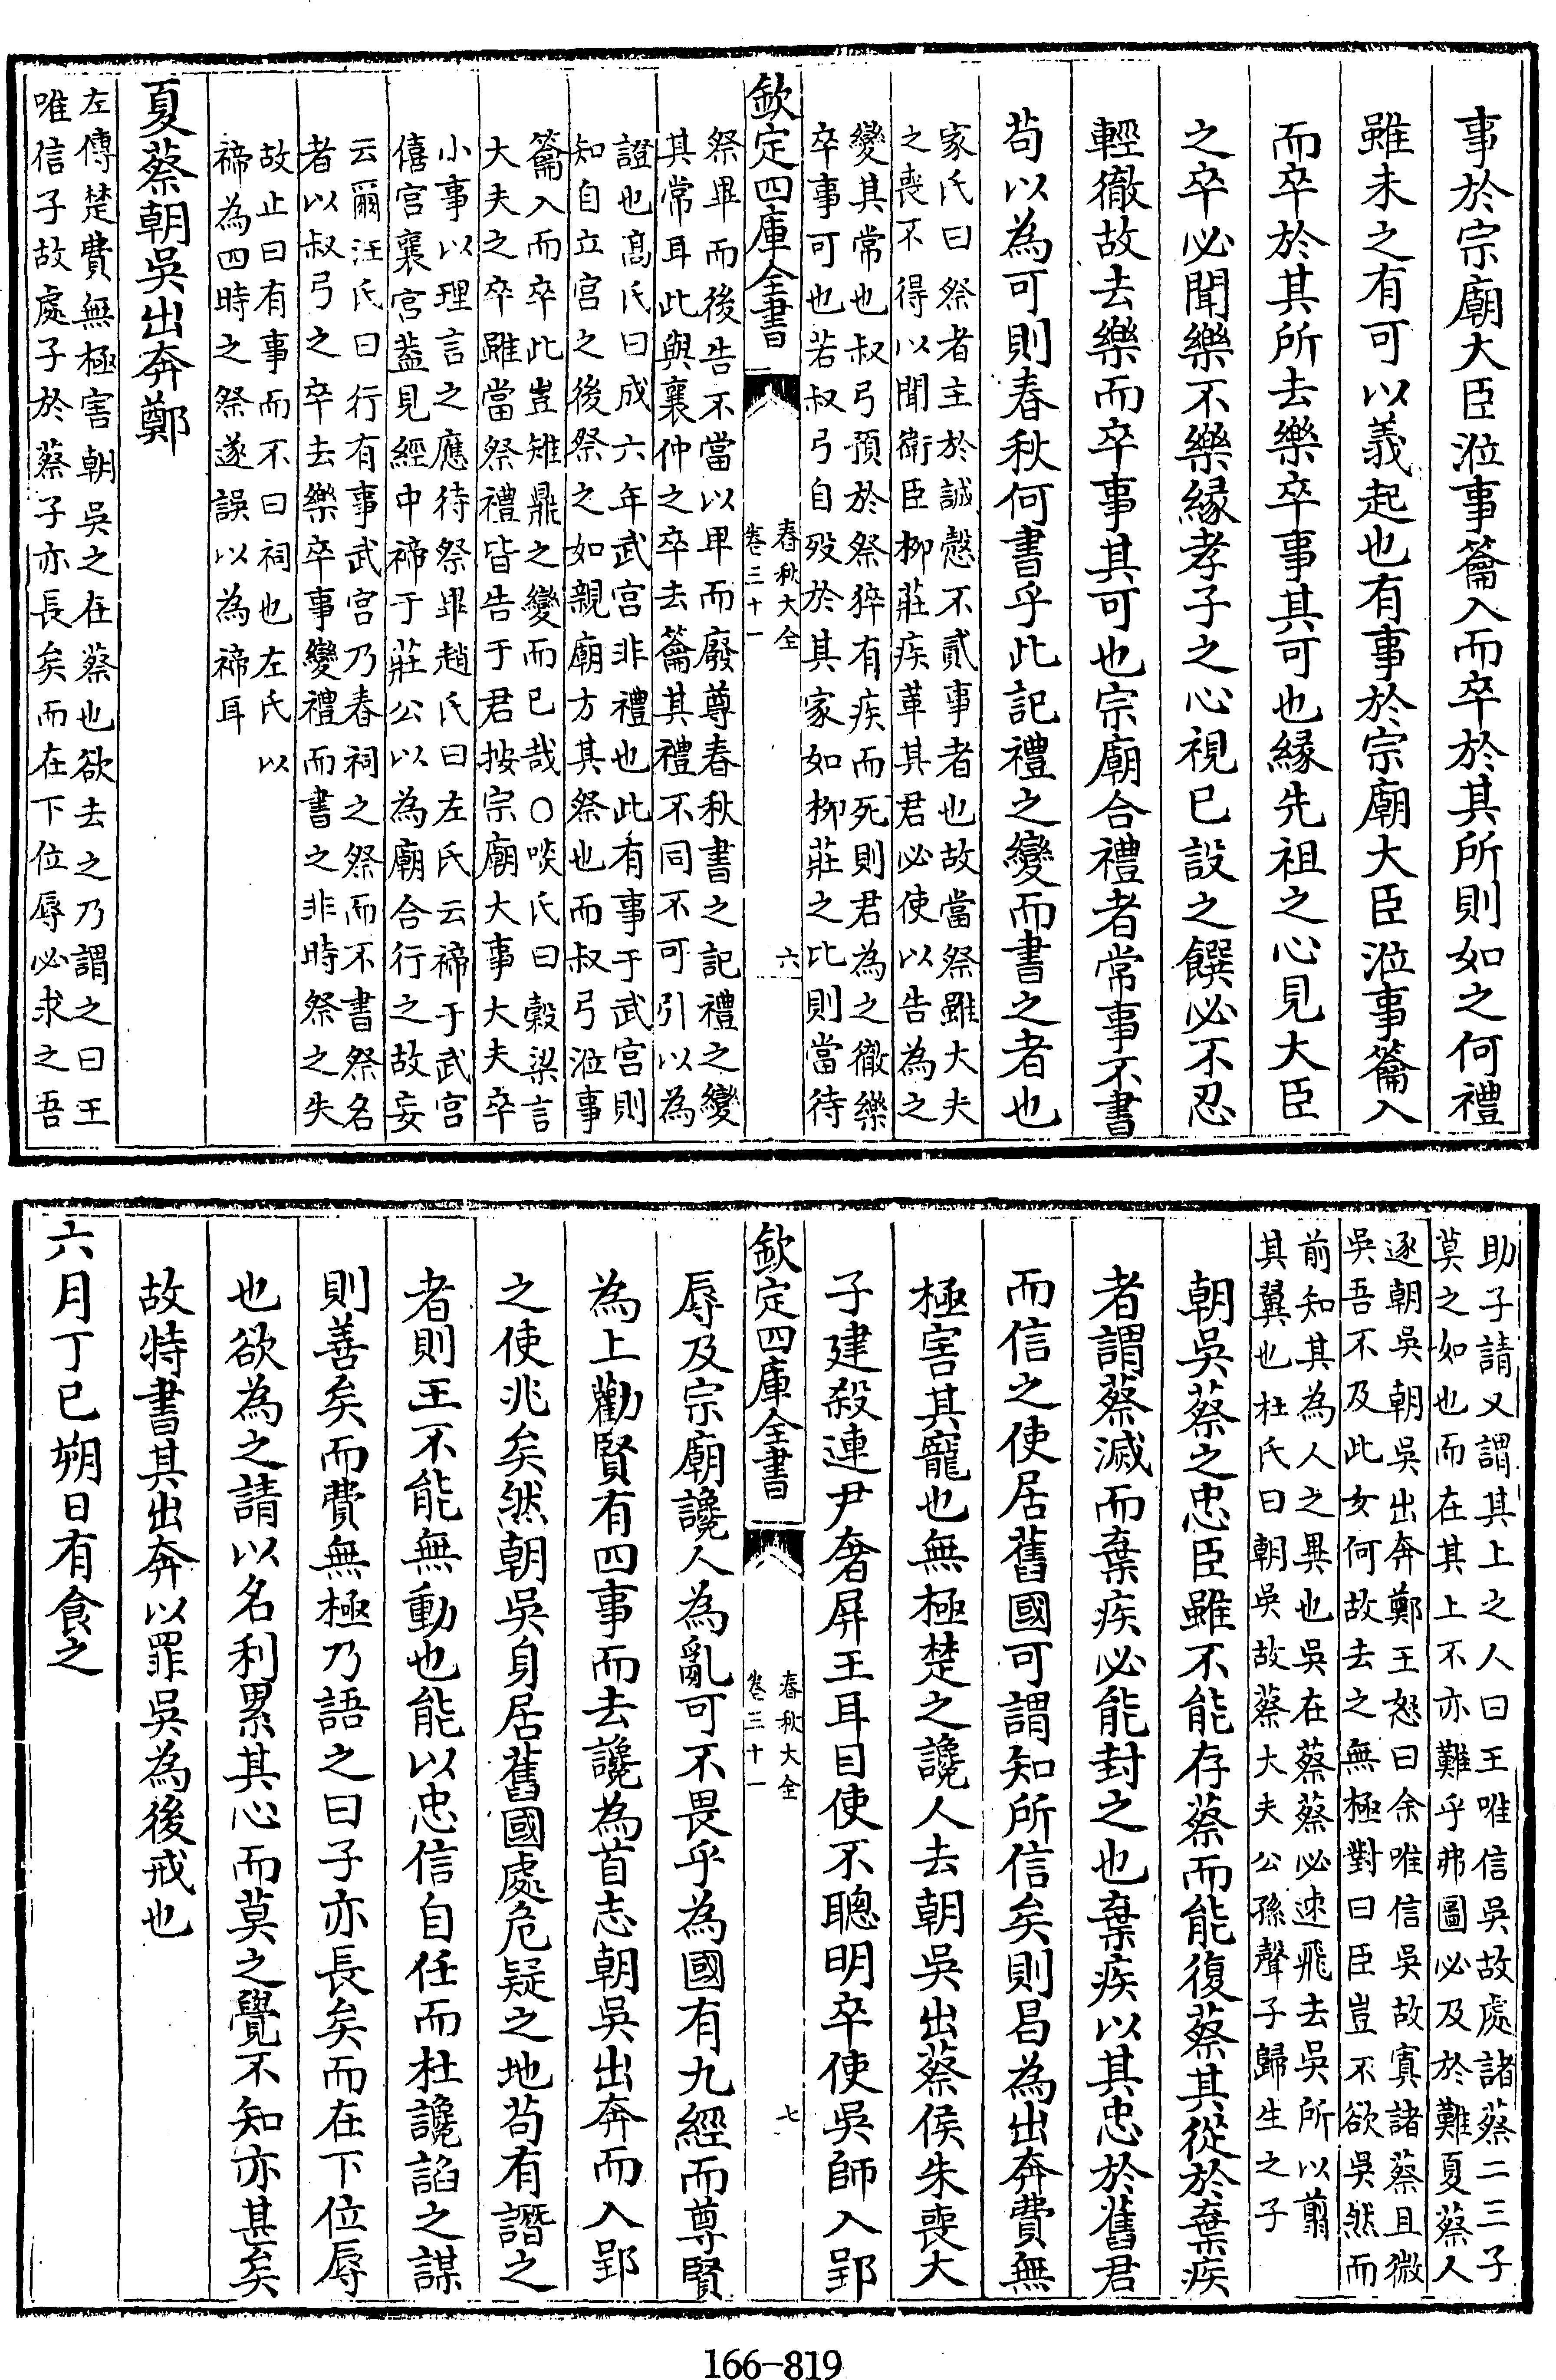 事於宗廟大臣涖事籥入而卒於其所則如之何禮
雖未之有可以義起也有事於宗廟大臣涖事籥入
而卒於其所去樂卒事其可也緣先祖之心見大臣
之卒必聞樂不樂緣孝子之心視已設之饌必不忍
輕徹故去樂而卒事其可也宗廟合禮者常事不書
苟以為可則春秋何書乎此記禮之變而書之者也
家氏曰祭者主於誠慤不貳事者也故當祭雖大夫
之喪不得以聞衛臣柳莊疾革其君必使以告為之
變其常也叔弓預於祭猝有疾而死則君為之徹樂
卒事可也若叔弓自歿於其家如柳莊之比則當待
欽定四庫全書
春秋大全
卷三十一
六
祭畢而後告不當以卑而廢尊春秋書之記禮之變
其常耳此與襄仲之卒去籥其禮不同不可引以為
證也髙氏曰成六年武宫非禮也此有事于武宫則
知自立宫之後祭之如親廟方其祭也而叔弓涖事
籥入而卒此豈雉鼎之變而已哉○啖氏曰穀梁言
大夫之卒雖當祭禮皆告于君按宗廟大事大夫卒
小事以理言之應待祭畢趙氏曰左氏云禘于武宫
僖宫襄宫蓋見經中禘于莊公以為廟合行之故妄
云爾汪氏曰行有事武宫乃春祠之祭而不書祭名
者以叔弓之卒去樂卒事變禮而書之非時祭之失
故止曰有事而不曰祠也左氏以
禘為四時之祭遂誤以為禘耳
夏蔡朝吳出奔鄭
左傳楚費無極害朝吳之在蔡也欲去之乃謂之曰王
唯信子故處子於蔡子亦長矣而在下位辱必求之吾
助子請又謂其上之人曰王唯信吳故處諸蔡二三子
莫之如也而在其上不亦難乎弗圖必及於難夏蔡人
逐朝吳朝吳出奔鄭王怒曰余唯信吳故寘諸蔡且微
吳吾不及此女何故去之無極對曰臣豈不欲吳然而
前知其為人之異也吳在蔡蔡必速飛去吳所以翦
其翼也杜氏曰朝吳故蔡大夫公孫聲子歸生之子
朝吳蔡之忠臣雖不能存蔡而能復蔡其從於棄疾
者謂蔡滅而棄疾必能封之也棄疾以其忠於舊君
而信之使居舊國可謂知所信矣則曷為出奔費無
極害其寵也無極楚之讒人去朝吳出蔡侯朱喪大
子建殺連尹奢屏王耳目使不聰明卒使吳師入郢
欽定四庫全書
春秋大全
卷三十一
七
辱及宗廟讒人為亂可不畏乎為國有九經而尊賢
為上勸賢有四事而去讒為首志朝吳出奔而入郢
之使兆矣然朝吳身居舊國處危疑之地苟有譖之
者則王不能無動也能以忠信自任而杜讒諂之謀
則善矣而費無極乃語之曰子亦長矣而在下位辱
也欲為之請以名利累其心而莫之覺不知亦甚矣
故特書其出奔以罪吳為後戒也
六月丁巳朔日有食之
166-819